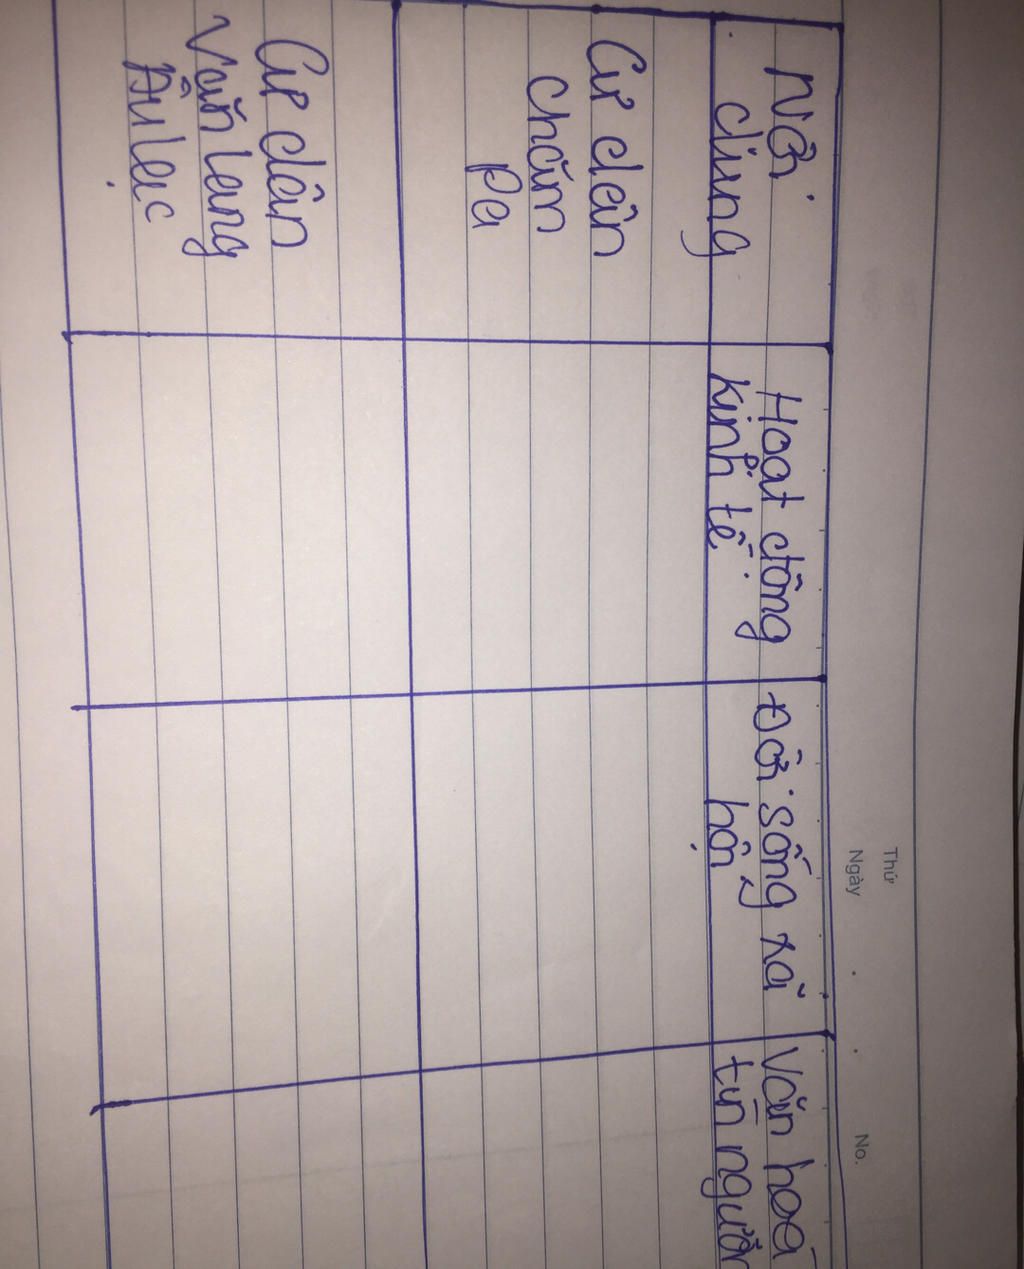 Thứ
Ngày
No.
Nội
dung
Hoạt động
kinh tế
Đời sống xã
hội
Văn hoá
tín ngưỡn
Cư dân
chăm
Pa
Cư dân
Văn lang
Âu lạc